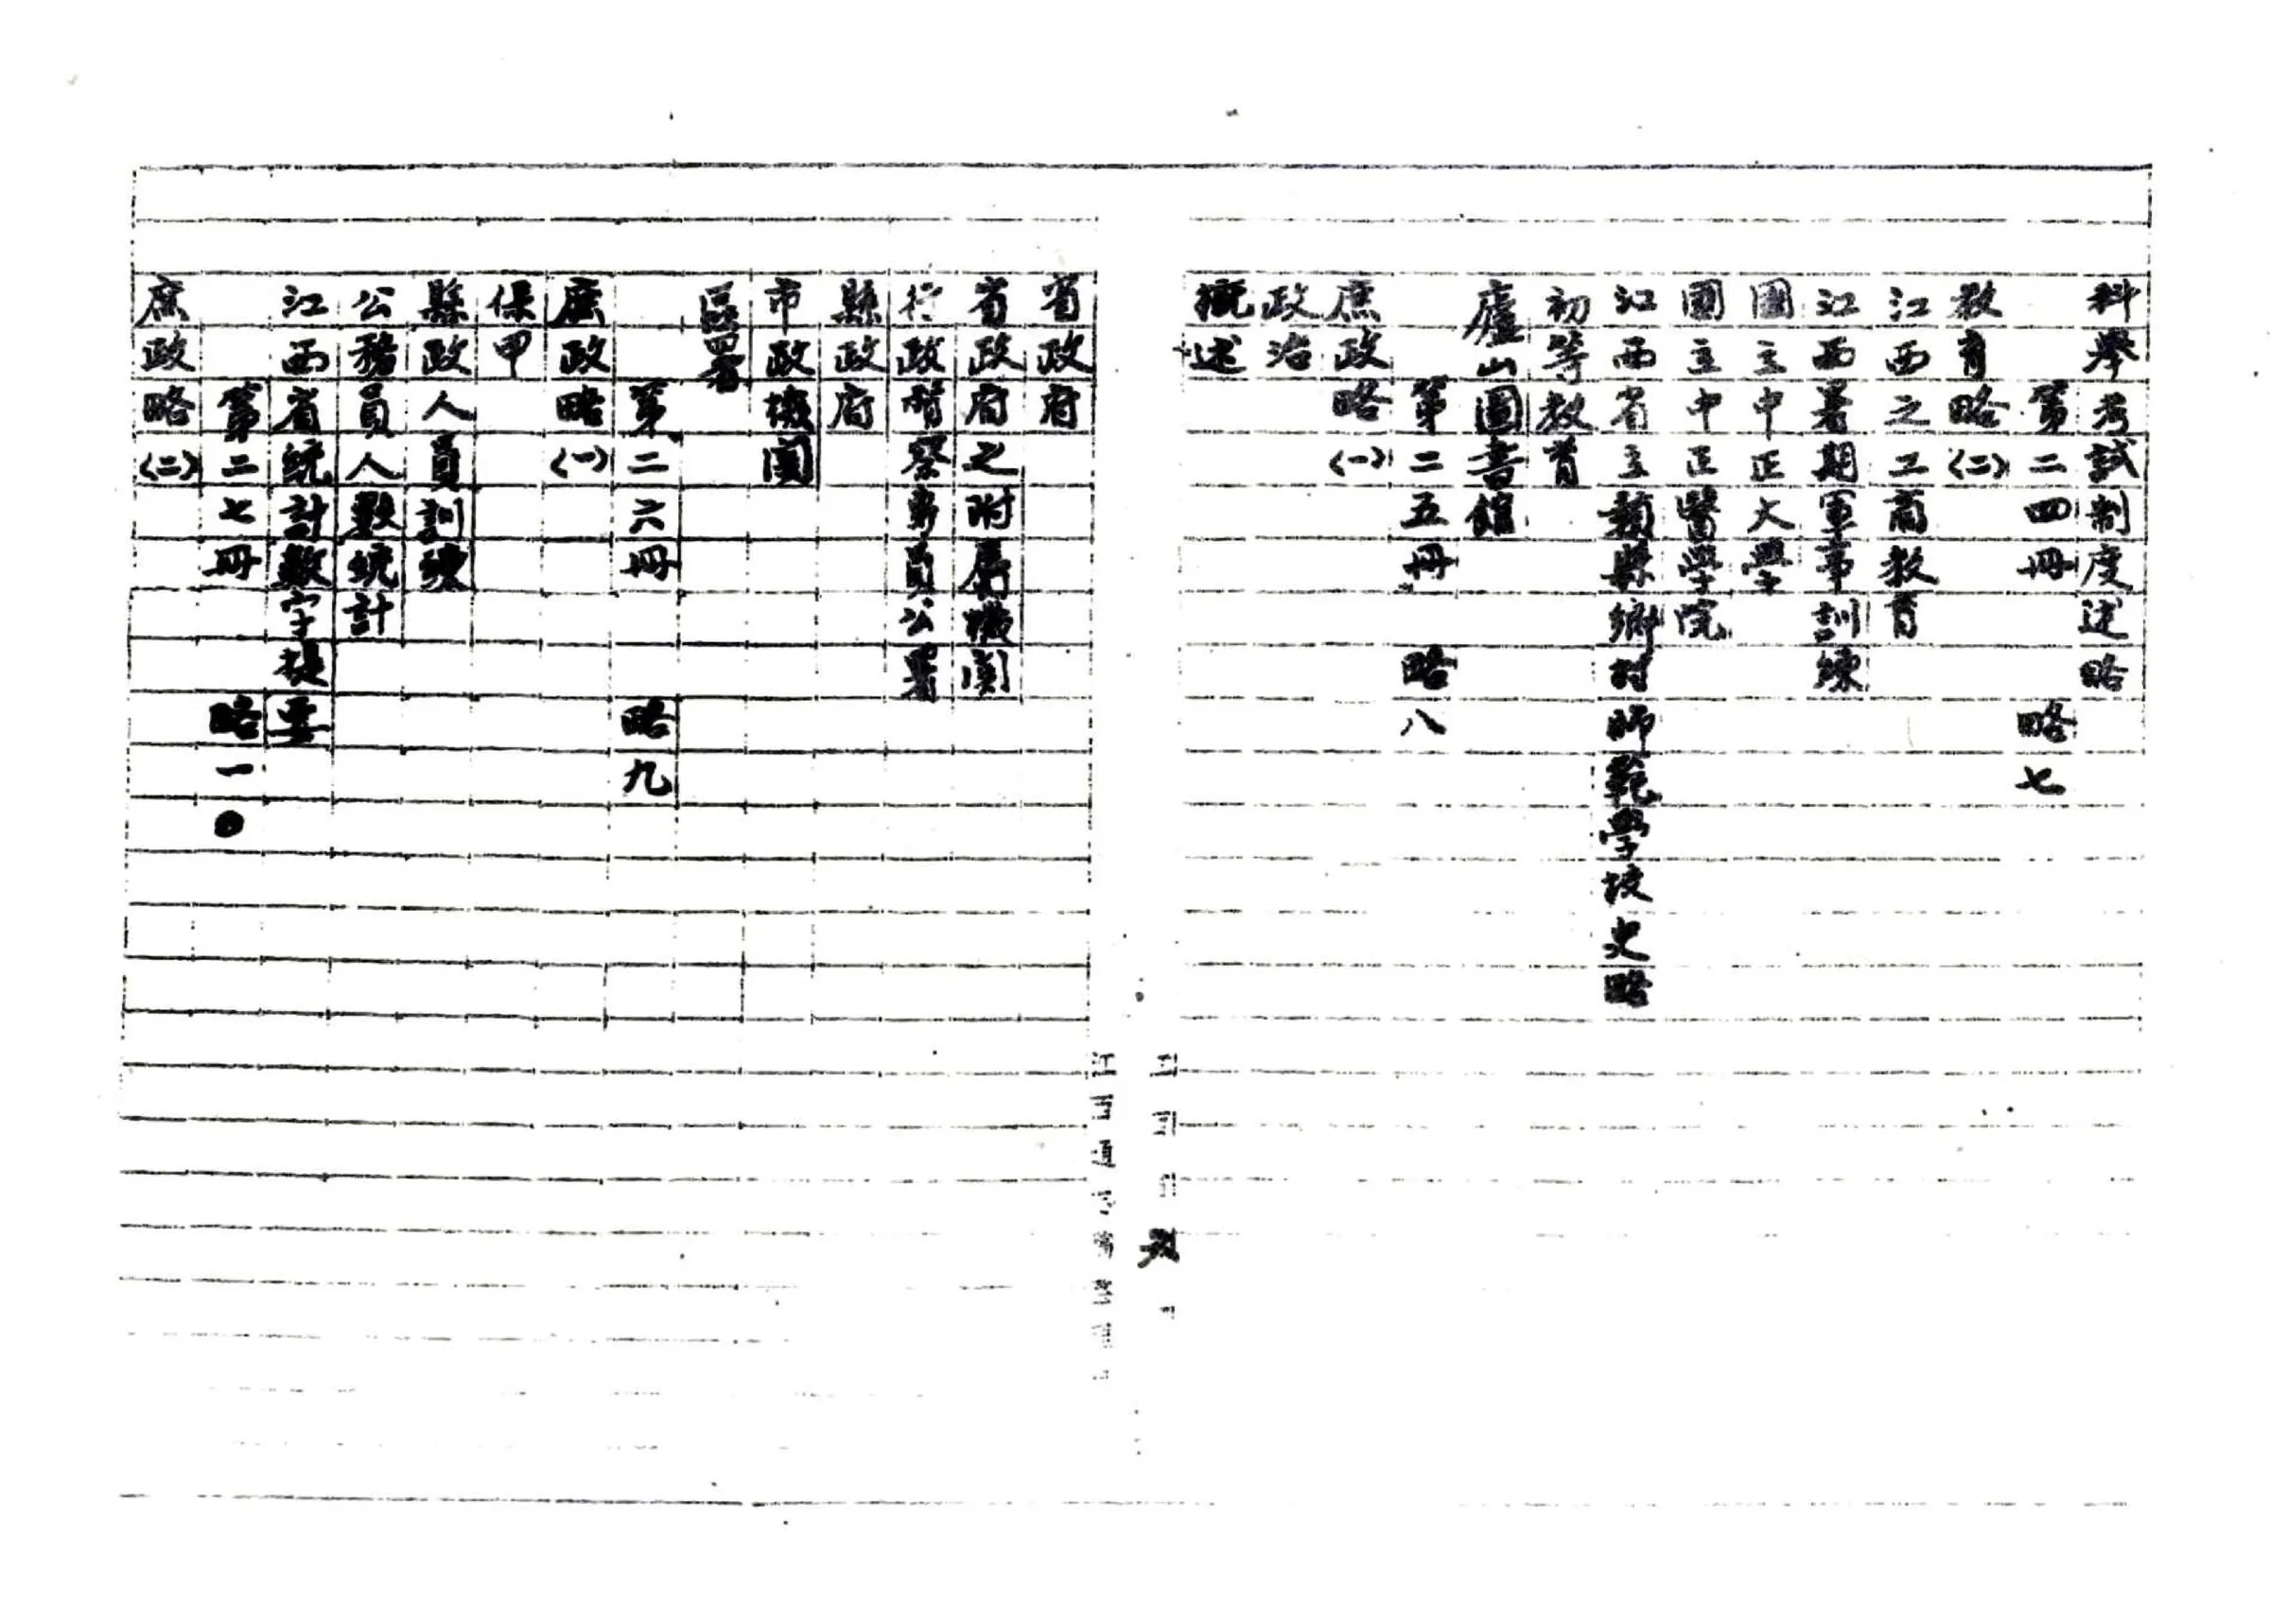 科學考試制度述略
第二四冊 略七
教育略(二)
江西之工商教育
江西暑期軍事訓練
國立中正大學
國立中正醫學院
江西省立類縣鄉村師範學校史略
初等教育
廬山圖書館
第二五冊 略八
庶政略(一)
政治
概述
省政府
省政府之附屬機關
行政督察專員公署
縣政府
市政機關
區署
第二六冊 略九
庶政略(一)
保甲
縣政人員訓練
公務員人數統計
江西省統計數字提要
第二七冊 略一〇
庶政略(二)